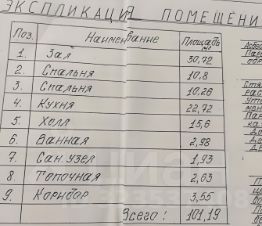 ЭКСПЛИКАЦИЯ ПОМЕЩЕНИ
Поз. Наименование Площадь
1. Зал 30,72
2. Спальня 10,8
3. Спальня 10,26
4. Кухня 22,72
5. Холл 15,6
6. Ванная 2,98
7. Сан.узел 1,93
8. Топочная 2,63
9. Коридор 3,55
Всего: 101,19